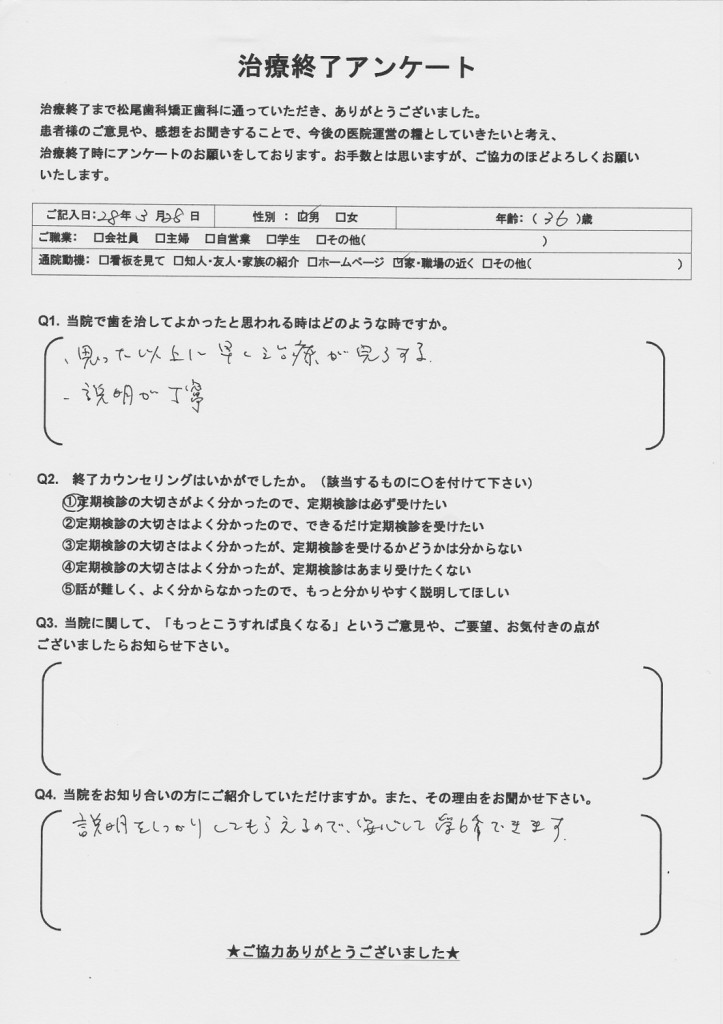 治療終了アンケート
治療終了まで松尾歯科矯正歯科に通っていただき、ありがとうございました。
患者様のご意見や、感想をお聞きすることで、今後の医院運営の糧としていきたいと考え、
治療終了時にアンケートのお願いをしております。お手数とは思いますが、ご協力のほどよろしくお願い
いたします。
ご記入日:28年 3 月28 日 性別 : ☑男 □女 年齢:( 36 )歳
ご職業: □会社員 □主婦 □自営業 □学生 □その他( )
通院動機: □看板を見て □知人・友人・家族の紹介 □ホームページ ☑家・職場の近く □その他( )
Q1. 当院で歯を治してよかったと思われる時はどのような時ですか。
、思った以上に早く治療が完了する.
- 説明が丁寧
Q2. 終了カウンセリングはいかがでしたか。(該当するものに〇を付けて下さい)
①定期検診の大切さがよく分かったので、定期検診は必ず受けたい
②定期検診の大切さはよく分かったので、できるだけ定期検診を受けたい
③定期検診の大切さはよく分かったが、定期検診を受けるかどうかは分からない
④定期検診の大切さはよく分かったが、定期検診はあまり受けたくない
⑤話が難しく、よく分からなかったので、もっと分かりやすく説明してほしい
Q3. 当院に関して、「もっとこうすれば良くなる」というご意見や、ご要望、お気付きの点が
ございましたらお知らせ下さい。
Q4. 当院をお知り合いの方にご紹介していただけますか。また、その理由をお聞かせ下さい。
説明をしっかりしてもらえるので、安心して できます.
★ご協力ありがとうございました★